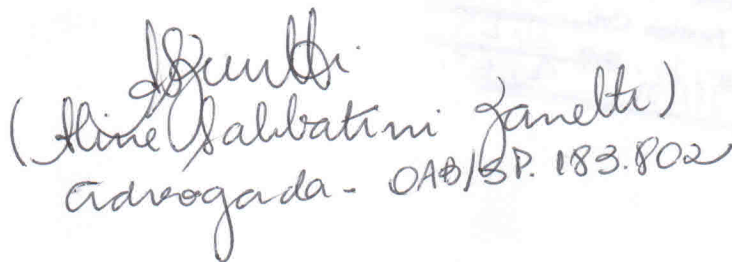 (Aline Sabbatini Zanetti)
Advogada - OAB/SP. 183.802